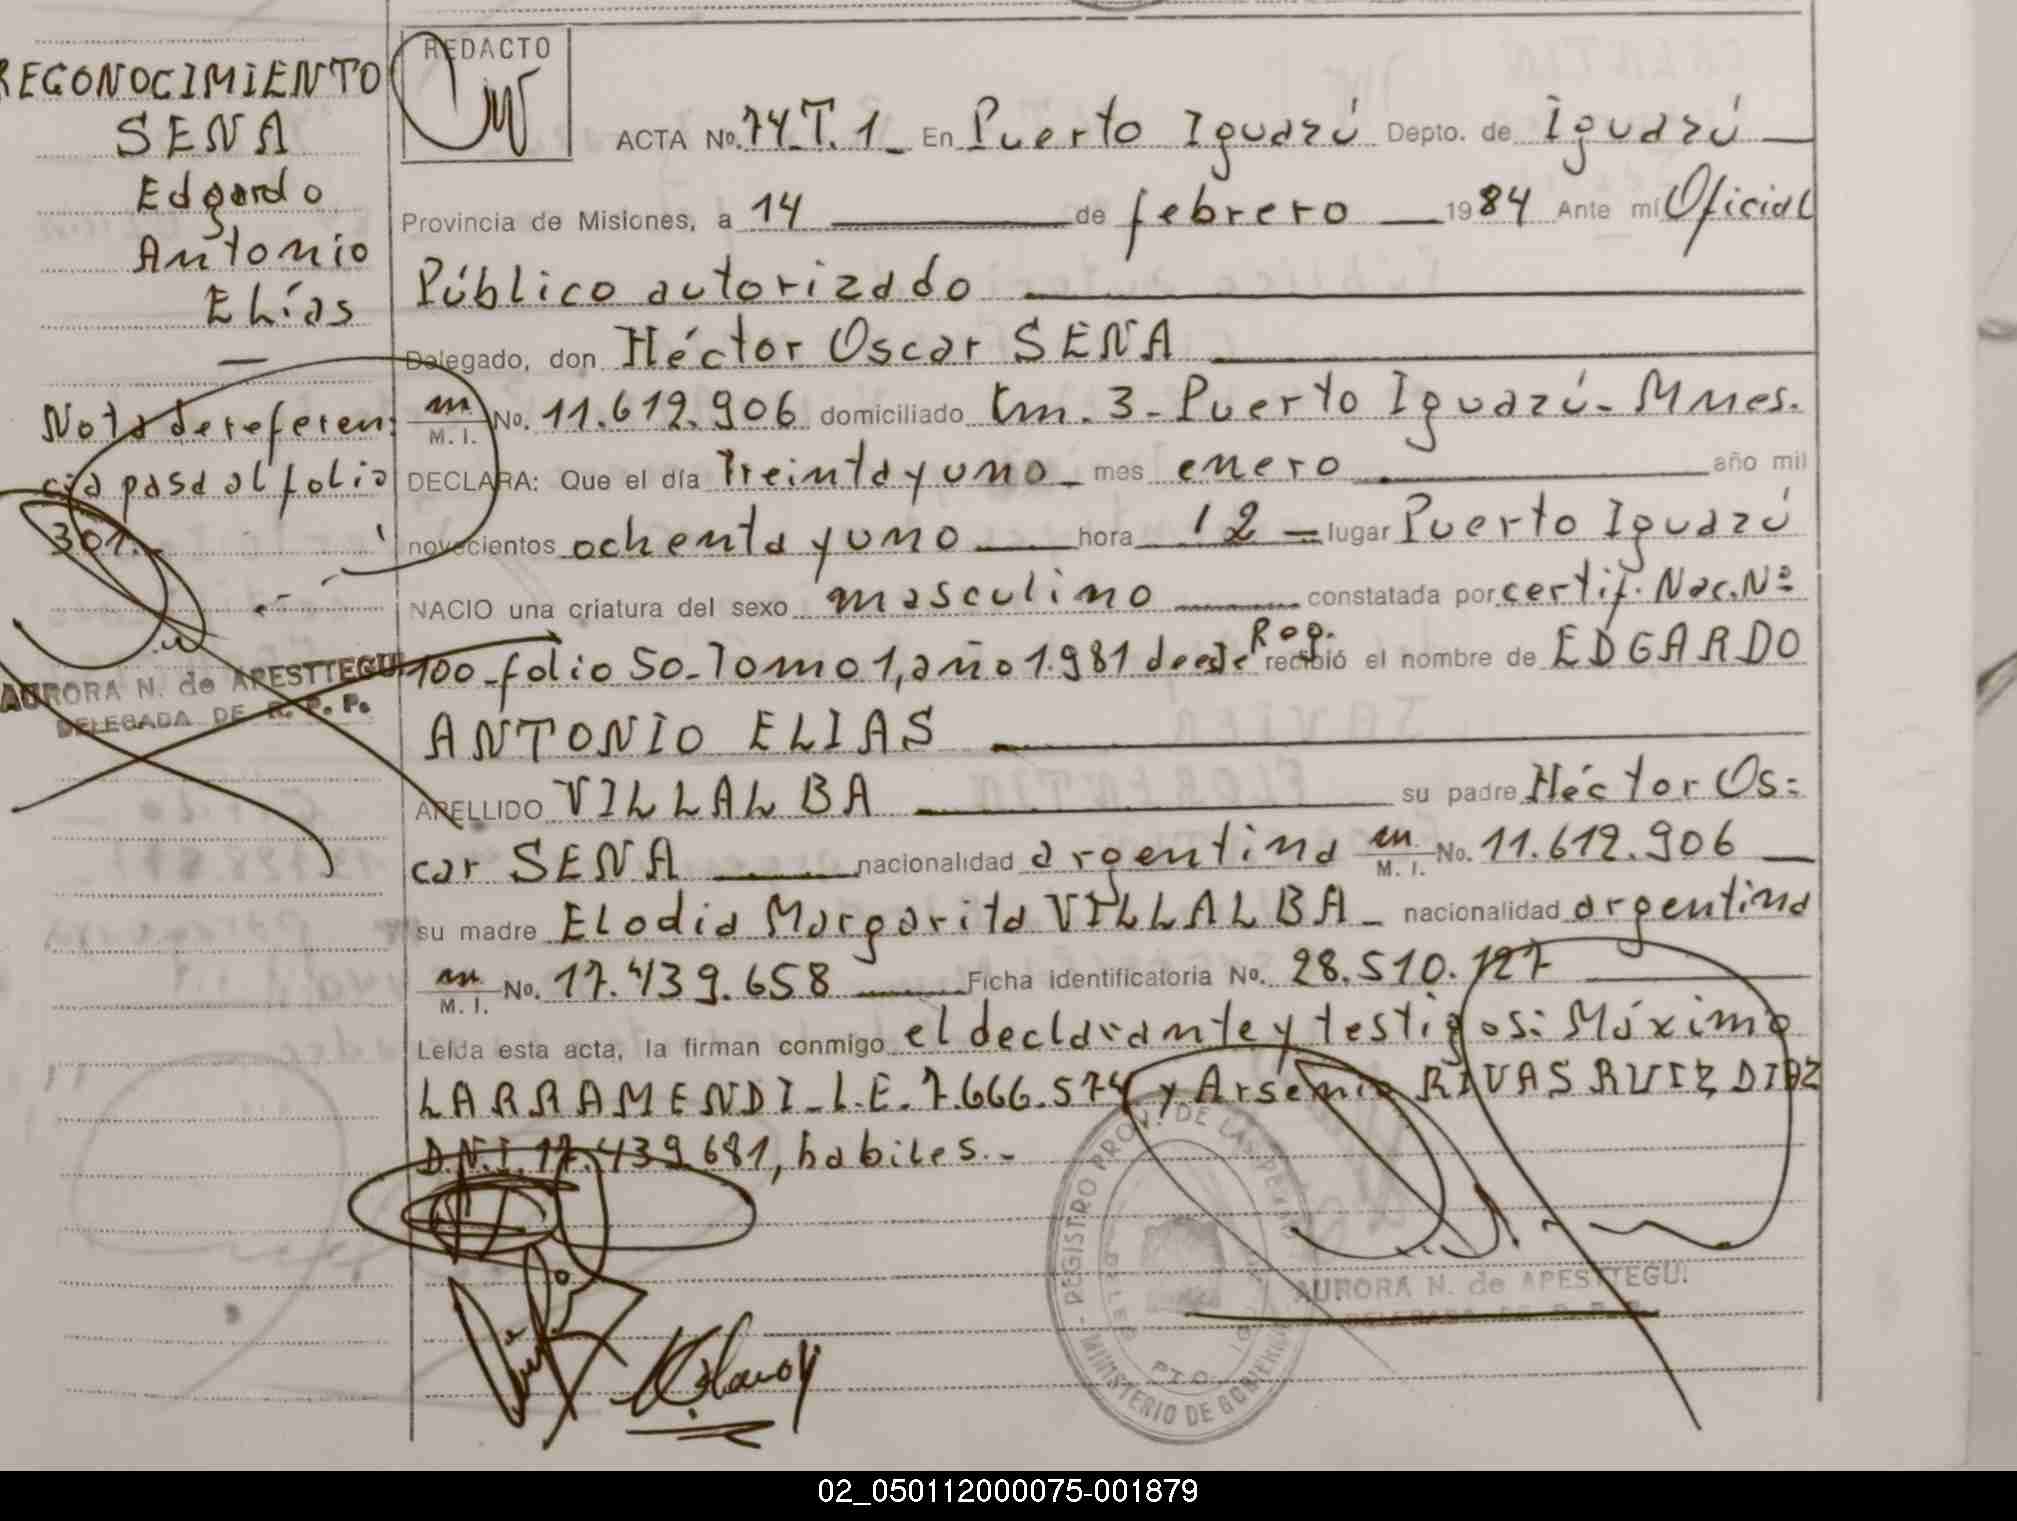 RECONOCIMIENTO
SENA
Edgardo
Antonio
Elías
Nota de referen-
cia pasa al folio
301.-
AURORA N. de APESTTEGUI
DELEGADA DE R. P. P.
REDACTO
ACTA No. 74.T.1_ En Puerto Iguazú Depto. de Iguazú
Provincia de Misiones, a 14 de febrero 1984 Ante mí Oficial
Público autorizado
Delegado, don Héctor Oscar SENA
M. I. No. 11.612.906 domiciliado Km. 3- Puerto Iguazú- Mnes.
DECLARA: Que el día Treinta y uno mes enero año mil
novecientos ochenta y uno hora 12 lugar Puerto Iguazú
NACIO una criatura del sexo masculino constatada por certif. Nac. Nº
100-folio 50-Tomo 1, año 1.981 de este Reg. recibió el nombre de EDGARDO
ANTONIO ELIAS
APELLIDO VILLALBA su padre Héctor Os=
car SENA nacionalidad argentina M. I. No. 11.612.906
su madre Elodia Margarita VILLALBA- nacionalidad argentina
M. I. No. 17.439.658 Ficha identificatoria No. 28.510.127
Leída esta acta, la firman conmigo el declarante y testigos: Máximo
LARRAMENDI-L.E.7.666.574 y Arsenio RIVAS RUIZ DIAZ
D.N.I. 17.439.681, habiles.-
REGISTRO PROV. DE LAS PERSONAS
MINISTERIO DE GOBIERNO
AURORA N. de APESTTEGUI
DELEGADA DE R. P. P.
02_050112000075-001879